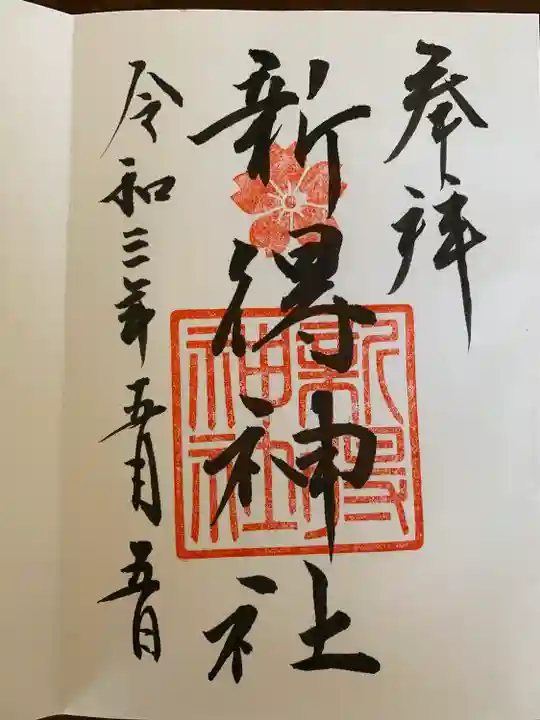 奉拝
新得神社
新得
神社
令和三年五月五日